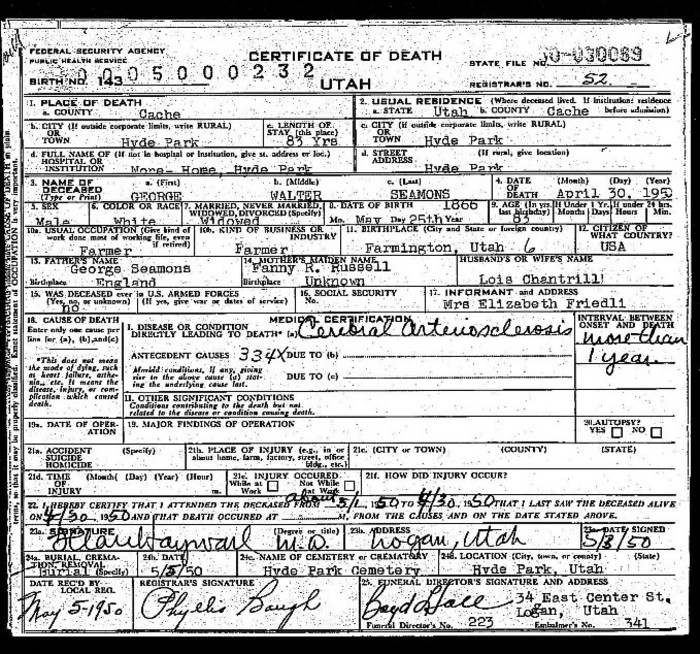 FEDERAL SECURITY AGENCY
PUBLIC HEALTH SERVICE
CERTIFICATE OF DEATH
STATE FILE NO. 50-030089
00050000232
BIRTH NO. 143
UTAH
REGISTRAR'S NO. 52
1. PLACE OF DEATH
a. COUNTY Cache
2. USUAL RESIDENCE (Where deceased lived. If institution: residence before admission)
a. STATE Utah b. COUNTY Cache
b. CITY (If outside corporate limits, write RURAL) OR TOWN Hyde Park
c. LENGTH OF STAY (this place) 83 Yrs
c. CITY (If outside corporate limits, write RURAL) OR TOWN Hyde Park
d. FULL NAME OF (If not in hospital or institution, give st. address or loc.) HOSPITAL OR INSTITUTION None- Home, Hyde Park
d. STREET ADDRESS (If rural, give location) Hyde Park
3. NAME OF DECEASED (Type or Print)
a. (First) GEORGE
b. (Middle) WALTER
c. (Last) SEAMONS
4. DATE OF DEATH (Month) (Day) (Year) April 30, 1950
5. SEX Male
6. COLOR OR RACE White
7. MARRIED, NEVER MARRIED, WIDOWED, DIVORCED (Specify) Widowed
8. DATE OF BIRTH 1866
Mo. May Day 25th Year
9. AGE (In years last birthday) 83
If Under 1 Yr. Months Days
If under 24 hrs. Hours Min.
10a. USUAL OCCUPATION (Give kind of work done most of working life, even if retired) Farmer
10b. KIND OF BUSINESS OR INDUSTRY Farmer
11. BIRTHPLACE (City and State or foreign country) Farmington, Utah 6
12. CITIZEN OF WHAT COUNTRY? USA
13. FATHER'S NAME George Seamons
Birthplace England
14. MOTHER'S MAIDEN NAME Fanny R. Russell
Birthplace Unknown
HUSBAND'S OR WIFE'S NAME
Lois Chantrill
15. WAS DECEASED EVER IN U.S. ARMED FORCES
(Yes, no, or unknown) (If yes, give war or dates of service)
no
16. SOCIAL SECURITY NO.
17. INFORMANT and ADDRESS
Mrs Elizabeth Friedli
18. CAUSE OF DEATH
Enter only one cause per line for (a), (b), and (c)
*This does not mean the mode of dying, such as heart failure, asthenia, etc. It means the disease, injury, or complication which caused death.
MEDICAL CERTIFICATION
I. DISEASE OR CONDITION DIRECTLY LEADING TO DEATH* (a) Cerebral Arteriosclerosis
ANTECEDENT CAUSES 334X DUE TO (b)
Morbid conditions, if any, giving rise to the above cause (a) stating the underlying cause last.
DUE TO (c)
INTERVAL BETWEEN ONSET AND DEATH
more than
1 year
II. OTHER SIGNIFICANT CONDITIONS
Conditions contributing to the death but not related to the disease or condition causing death.
19a. DATE OF OPERATION
19. MAJOR FINDINGS OF OPERATION
20. AUTOPSY?
YES NO
21a. ACCIDENT SUICIDE HOMICIDE (Specify)
21b. PLACE OF INJURY (e.g., in or about home, farm, factory, street, office bldg., etc.)
21c. (CITY OR TOWN) (COUNTY) (STATE)
21d. TIME OF INJURY (Month) (Day) (Year) (Hour) m.
21e. INJURY OCCURED
While at Work Not While at Work
21f. HOW DID INJURY OCCUR?
22. I HEREBY CERTIFY THAT I ATTENDED THE DECEASED FROM about 5/1, 1950 TO 4/30, 1950 THAT I LAST SAW THE DECEASED ALIVE
ON 4/30, 1950 AND THAT DEATH OCCURED AT M, FROM THE CAUSES AND ON THE DATE STATED ABOVE.
23a. SIGNATURE Hayward (Degree or title) M.D.
23b. ADDRESS Logan, Utah
23c. DATE SIGNED 5/3/50
24a. BURIAL, CREMATION, REMOVAL (Specify) Burial
24b. DATE 5/5/50
24c. NAME OF CEMETERY OR CREMATORY Hyde Park Cemetery
24d. LOCATION (City, town, or county) (State)
Hyde Park, Utah
DATE REC'D BY LOCAL REG. May 5-1950
REGISTRAR'S SIGNATURE Phyllis Baugh
25. FUNERAL DIRECTOR'S SIGNATURE AND ADDRESS
34 East Center St.
Logan, Utah
Funeral Director's No. 223 Embalmer's No. 341